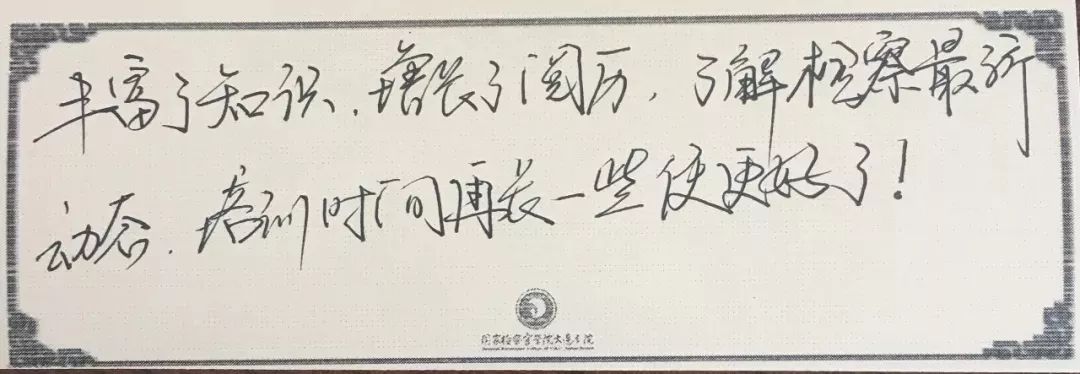 丰富了知识，增长了阅历，了解检察最新
动态，培训时间再长一些便更好了！
国家检察官学院大连分院